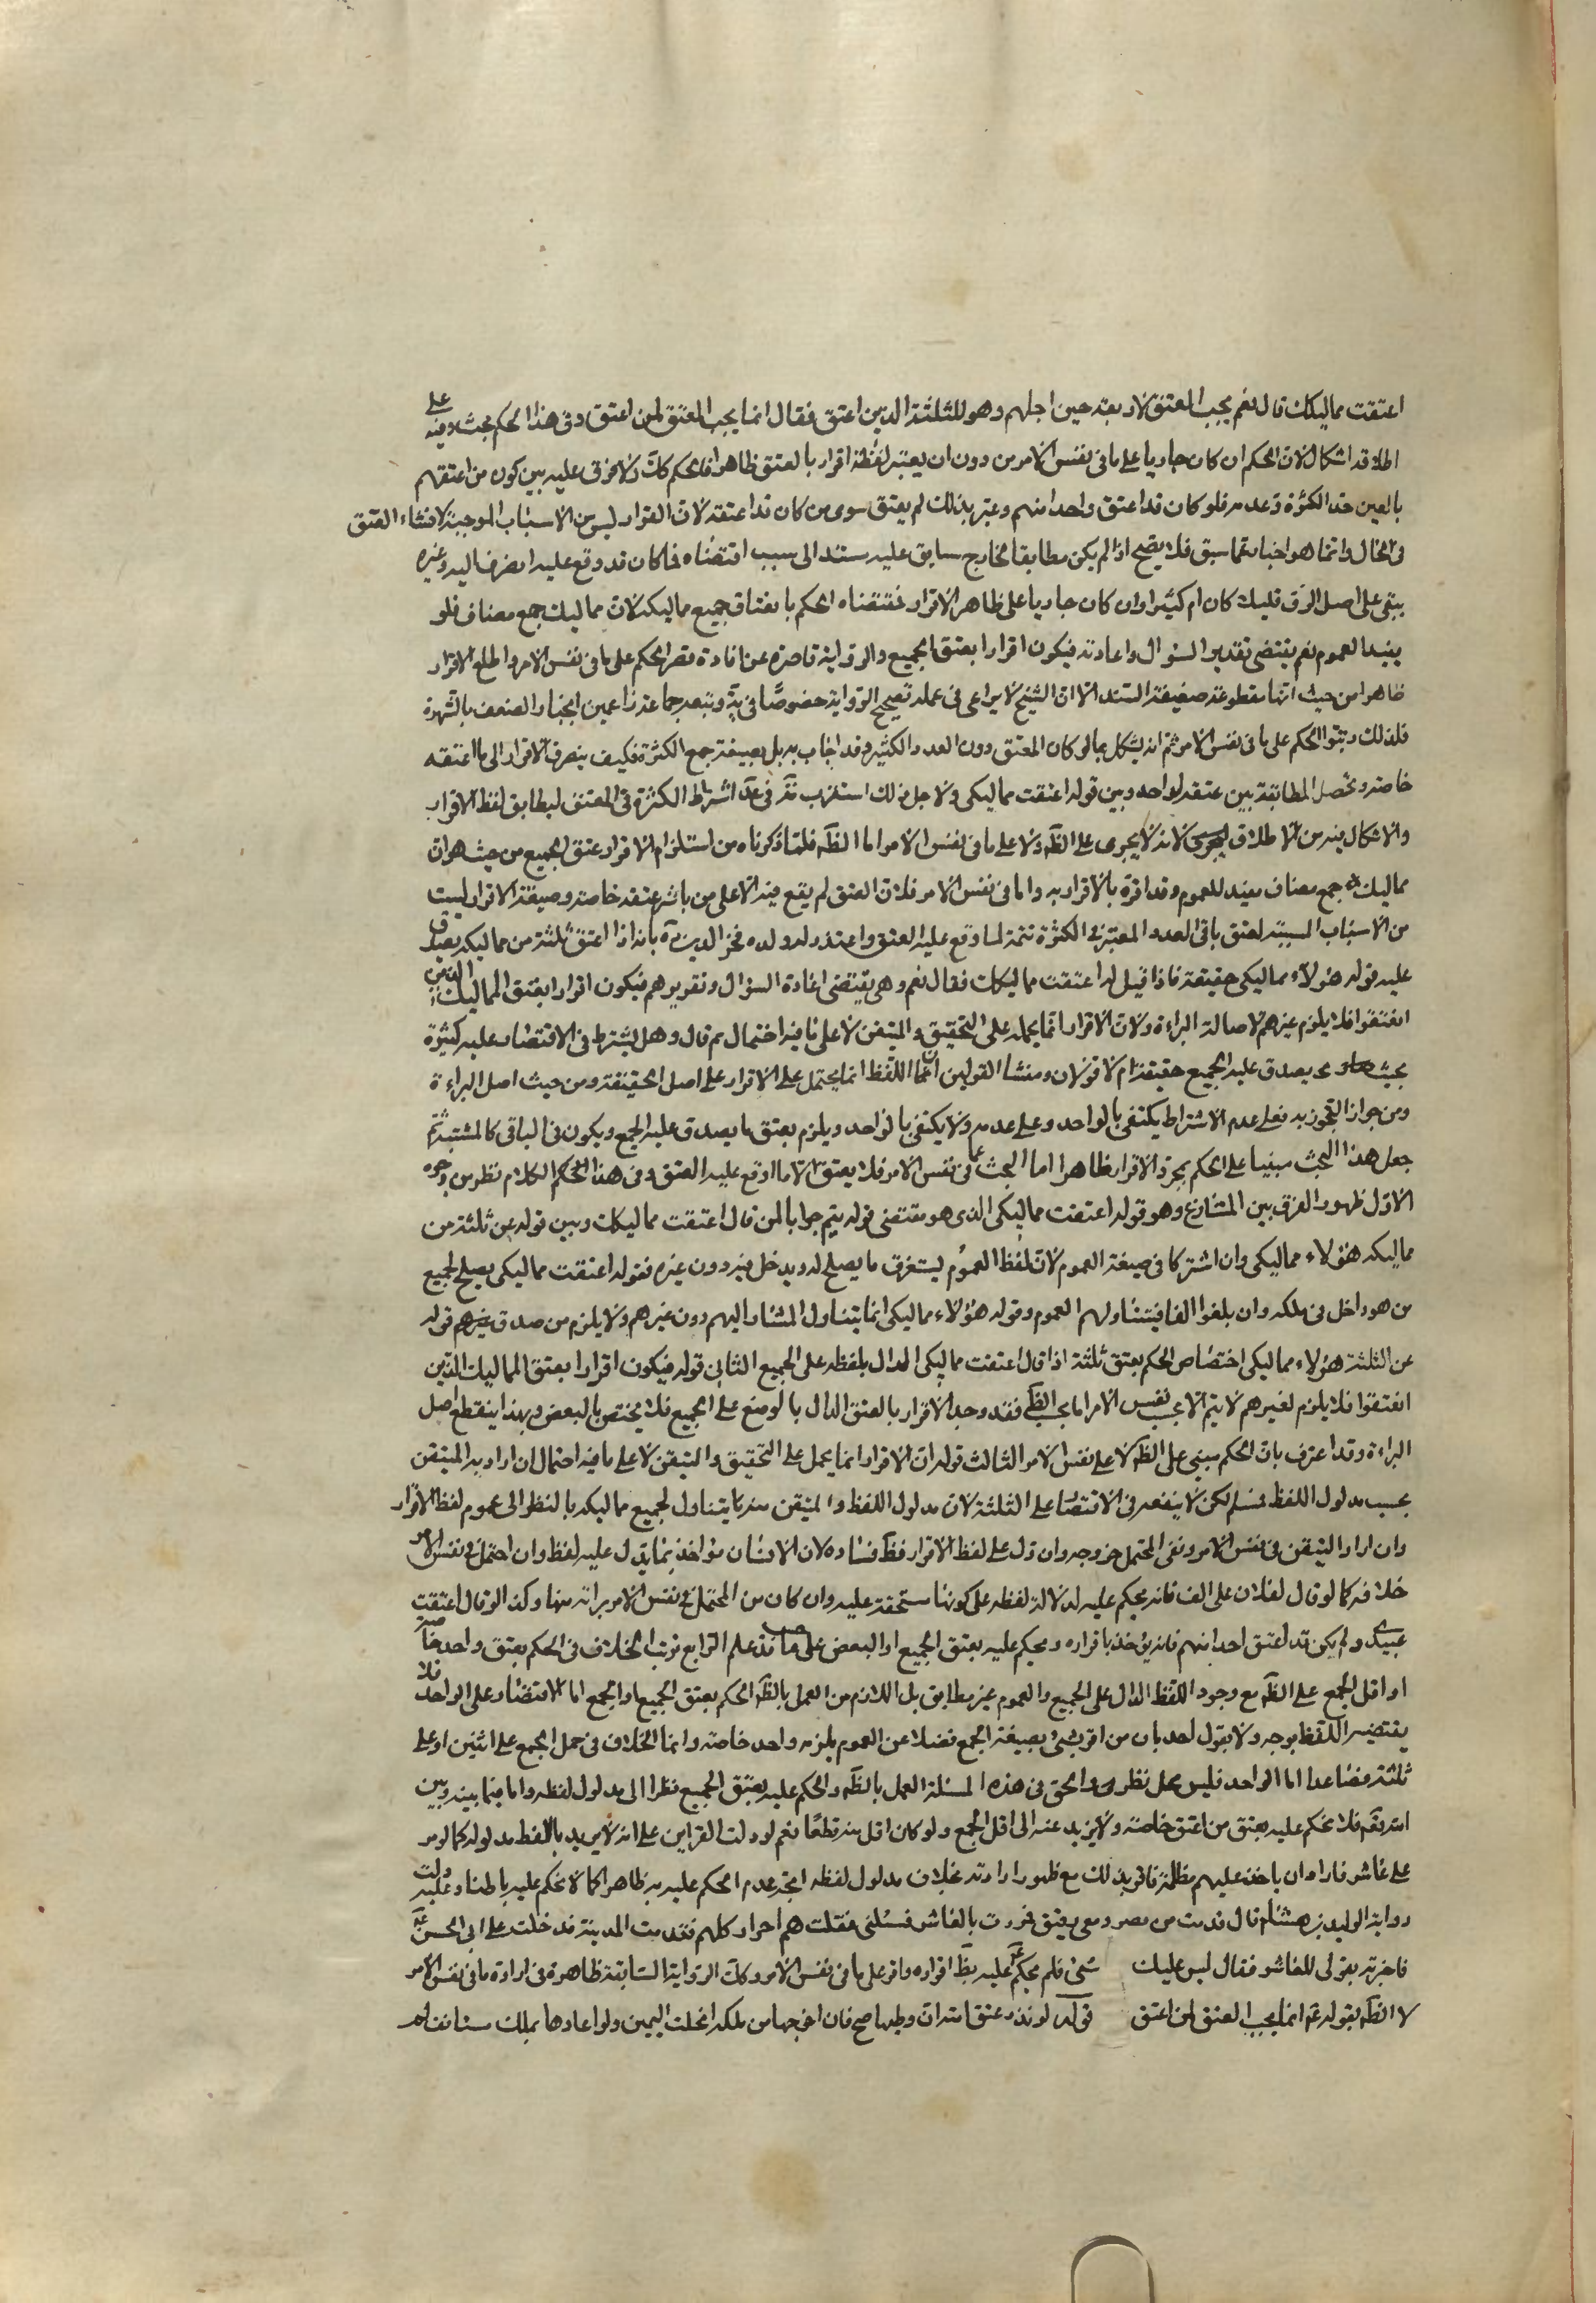 اعتقت مماليكك قال نعم يجب العتق لاربعته حين اجلهم وهو للثلثة الذين اعتق فقال انما يجب العتق لمن اعتق وفى هذا الحكم بحث وفيه على
اطلاقه اشكال لان الحكم ان كان جاريا على ما فى نفس الامر من دون ان يعتبر لفظه اقرار بالعتق ظاهرا فالحكم كك ولا فرق عليه بين كون من اعتقهم
بالغين حد الكثرة وعدمه فلو كان قد اعتق واحدا منهم وعبر بذلك لم يعتق سوى من كان قد اعتقه لان الاقرار ليس من الاسباب الموجبة لانشاء العتق
فى الحال وانما هو اخبار عما سبق فلا يصح اذا لم يكن مطابقا لخارج سابق عليه مستند الى سبب اقتضاه فما كان قد وقع عليه انصرف اليه وغيره
يبقى على اصل الرق قليلا كان ام كثيرا وان كان جاريا على ظاهر الاقرار فمقتضاه الحكم بانعتاق جميع مماليكه لان مماليك جمع مضاف فلو
يفيد العموم نعم يقتضى تقدير السؤال واعادته فيكون اقرارا بعتق الجميع والرواية قاصرة عن افادة قصر الحكم على ما فى نفس الامر واطلع الاقرار
ظاهرا من حيث انها مقطوعة ضعيفة السند الا ان الشيخ لا يراعى فى عمله تصحيح الرواية خصوصا فى ية وتبعه جماعة زاعمين انجبار الضعف بالشهرة
فلذلك رتبوا الحكم على ما فى نفس الامر ثم انه يشكل بما لو كان المعتق دون العدد الكثير وقد اجاب به بل بصيغة جمع الكثرة فكيف ينصرف الاقرار الى ما اعتقه
خاصة وتحصل المطابقة بين عتقه لواحد وبين قوله اعتقت مماليكى ولاجل ذلك استقرب فى عد اشتراط الكثرة فى المعتق ليطابق لفظ الاقرار
والاشكال فيه من الاطلاق لانه لا يجرى على الظه ولا على ما فى نفس الامر اما الظه فلما ذكرناه من استلزام الاقرار عتق الجميع من حيث هو ان
مماليك جمع مضاف مفيد للعموم وقد اقره بالاقرار به واما فى نفس الامر فلان العتق لم يقع فيه الا على من باشر عتقه خاصة وصيغة الاقرار ليست
من الاسباب المسببة لعتق باقى العدد المعتبر فى الكثرة تتمة لما وقع عليه العتق واعتذر له ولده فخر الدين ره بانه اذا اعتق ثلثة من مماليكه يصدق
عليه قوله هؤلاء مماليكى حقيقة فاذا قيل له اعتقت مماليكك فقال نعم وهى يقتضى اعادة السؤال وتقريرهم فيكون اقرارا بعتق المماليك الذين
انعتقوا فلا يلزم غيرهم لاصالة البراءة ولان الاقرار انما يحمله على التحقيق والمتيقن لا على ما فيه احتمال ثم قال وهل يشترط فى الاقتصار عليه كثيرة
بحيث يصدق عليه الجميع حقيقة ام لا قولان ومنشا القولين ان اللفظ انما يحتمل على الاقرار على اصل الحقيقة ومن حيث اصل البراءة
ومن جواز التجوز به فعلى عدم الاشتراط يكتفى بالواحد وعلى عدمه ولا يكتفى بالواحد ويلزم بعتق ما يصدق عليه الجمع ويكون فى الباقى كالمشتبه ثم
جعل هذا البحث مبنيا على الحكم بمجرد الاقرار ظاهرا اما البحث عما فى نفس الامر فلا يعتق الا ما اوقع عليه العتق وفى هذا الحكم الكلام نظر من وجوه
الاول ظهور الفرق بين المتنازع وهو قوله اعتقت مماليكى الذى هو مقتضى قوله نعم جوابا لمن قال اعتقت مماليكك وبين قوله عن ثلثة من
مماليكه هؤلاء مماليكى وان اشتركا فى صيغة العموم لان لفظ العموم يستغرق ما يصلح له ويدخل فيه دون غيره فقوله اعتقت مماليكى يصلح لجميع
من هو داخل فى ملكه وان بلغوا الفا فيتناولهم العموم وقوله هؤلاء مماليكى انما يتناول المشار اليهم دون غيرهم ولا يلزم من صدق قوله
عن الثلثة هؤلاء مماليكى اختصاص الحكم بعتق ثلثة اذا قال اعتقت مماليكى الدال بلفظه على الجميع الثانى قوله فيكون اقرارا بعتق المماليك الذين
انعتقوا فلا يلزم لغيرهم لا يتم الا بحسب نفس الامر اما بحسب الظه فقد وجد الاقرار بالعتق الدال بالوضع على الجميع فلا يختص بالبعض وبهذا ينقطع اصل
البراءة وقد اعترف بان الحكم مبنى على الظه لا على نفس الامر الثالث قوله ان الاقرار انما يحمل على التحقيق والمتيقن لا على ما فيه احتمال ان اراد به المتيقن
بحسب مدلول اللفظ فمسلم لكن لا ينفعه فى الاقتصار على الثلثة لان مدلول اللفظ والمتيقن منه ما يتناول لجميع مماليكه بالنظر الى عموم لفظ الاقرار
وان اراد المتيقن فى نفس الامر ونفى المحتمل خروجه وان دل على لفظ الاقرار فظه فساده لان الانسان مؤاخذ بما يدل عليه لفظه وان احتمل فى نفس الامر
خلافه كما لو قال لفلان على الف فانه يحكم عليه لدلالة لفظه على كونها مستحقة عليه وان كان من المحتمل فى نفس الامر براءته منها وكذا لو قال اعتقت
عبيدى ولم يكن قد اعتق احدا منهم فانه يؤخذ باقراره ويحكم عليه بعتق الجميع او البعض على ما قد علم الرابع ترتب الخلاف فى الحكم بعتق واحد خاصة
او اقل الجمع على الظه مع وجود اللفظ الدال على الجميع والعموم غير مطابق بل اللازم من العمل بالظه الحكم بعتق الجميع او الجمع اما الاقتصار على الواحد فلا
يقتضيه اللفظ بوجه ولا يقول احد بان من اقر بشئ بصيغة الجمع فضلا عن العموم يلزمه واحد خاصة وانما الخلاف فى حمل الجمع على اثنين او على
ثلثة فصاعدا اما الواحد فليس محل نظر والحق فى هذه المسئلة العمل بالظه والحكم عليه بعتق الجميع نظرا الى مدلول لفظه واما فيما بينه وبين
الله تعه فلا نحكم عليه بعتق من اعتق خاصة ولا يزيد عنه الى اقل الجمع ولو كان اقل منه قطعا نعم لو دلت القراين على انه لا يريد باللفظ مدلوله كما لو مر
على عاشر فاراد ان ياخذ عليهم مظلمة فاقر بذلك مع ظهور ارادته بخلاف مدلول لفظه اتجه عدم الحكم عليه به ظاهرا كما لا نحكم عليه باطنا وعليه دلت
رواية الوليد بن هشام قال قدمت من مصر ومعى رقيق فمررت بالعاشر فسئلنى فقلت هم احرار كلهم فقدمت المدينة فدخلت على ابى الحسن عه
فاخبرته بقولى للعاشر فقال ليس عليك شئ فلم يحكم عه عليه بظه اقراره واقر على ما فى نفس الامر وكك الرواية السابقة ظاهرة فى ارادة ما فى نفس الامر
لا الظه بقوله عه انما يجب العتق لمن اعتق قوله لو نذر عتق امته ان وطيها صح فان اخرجها من ملكه انحلت اليمين ولو اعادها بملك مستانف لم